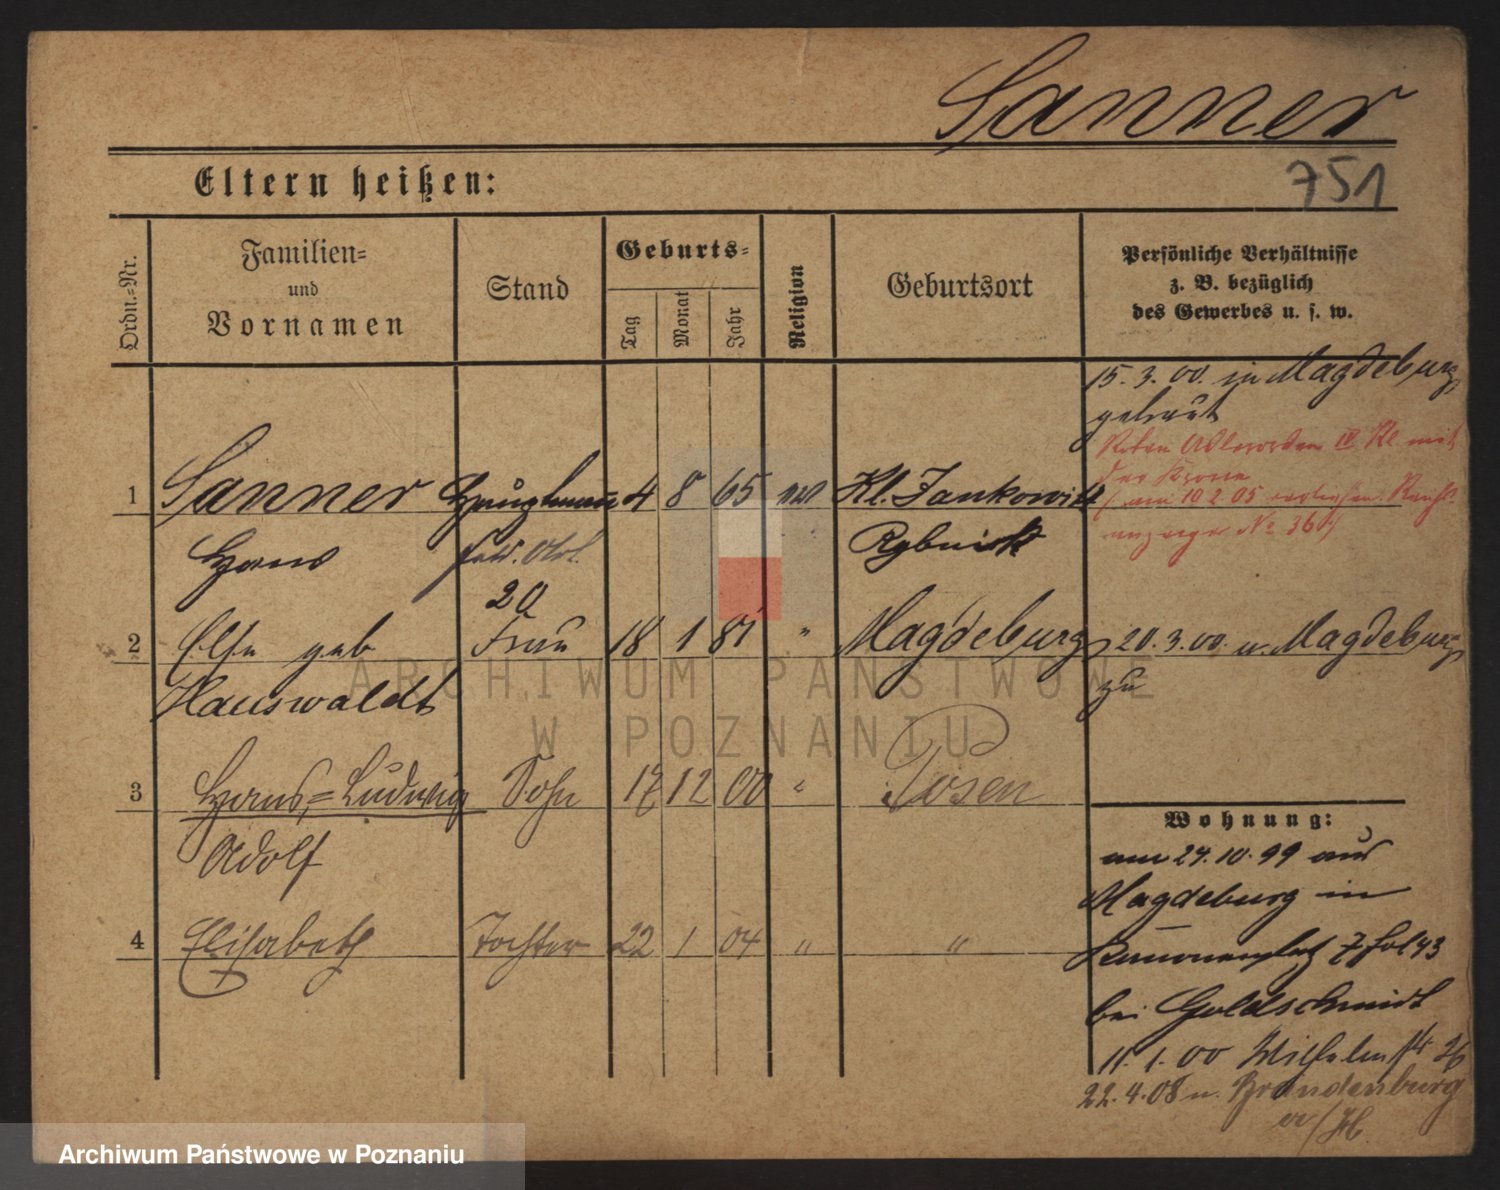 Sanner
751
Eltern heißen:
Ordn.-Nr.
Familien-
und
Vornamen
Stand
Geburts-
Tag
Monat
Jahr
Religion
Geburtsort
Persönliche Verhältnisse
z. B. bezüglich
des Gewerbes u. s. w.
15. 3. 00. in Magdeburg
getraut
Roten Adlerorden IV Kl. mit
der Krone
am 10 2. 05
anzeiger No 36)
1 Sanner Hauptmann 4 8 65 Kl. Jankowitz
Hans
Rybnick
20
2 Else geb Frau 18 1 81 " Magdeburg 20. 3. 00. v. Magdeburg
Hauswaldt
zu
3 Hans=Ludwig Sohn 17 12 00 " Posen
Adolf
4 Elisabeth Tochter 22 1 04 " "
Wohnung:
am 24. 10. 99 aus
Magdeburg in
7 43
bei Goldschmidt
11. 1. 00 Wilhelmstr 26
22. 4. 08 n. Brandenburg
ARCHIWUM PAŃSTWOWE
W POZNANIU
Archiwum Państwowe w Poznaniu